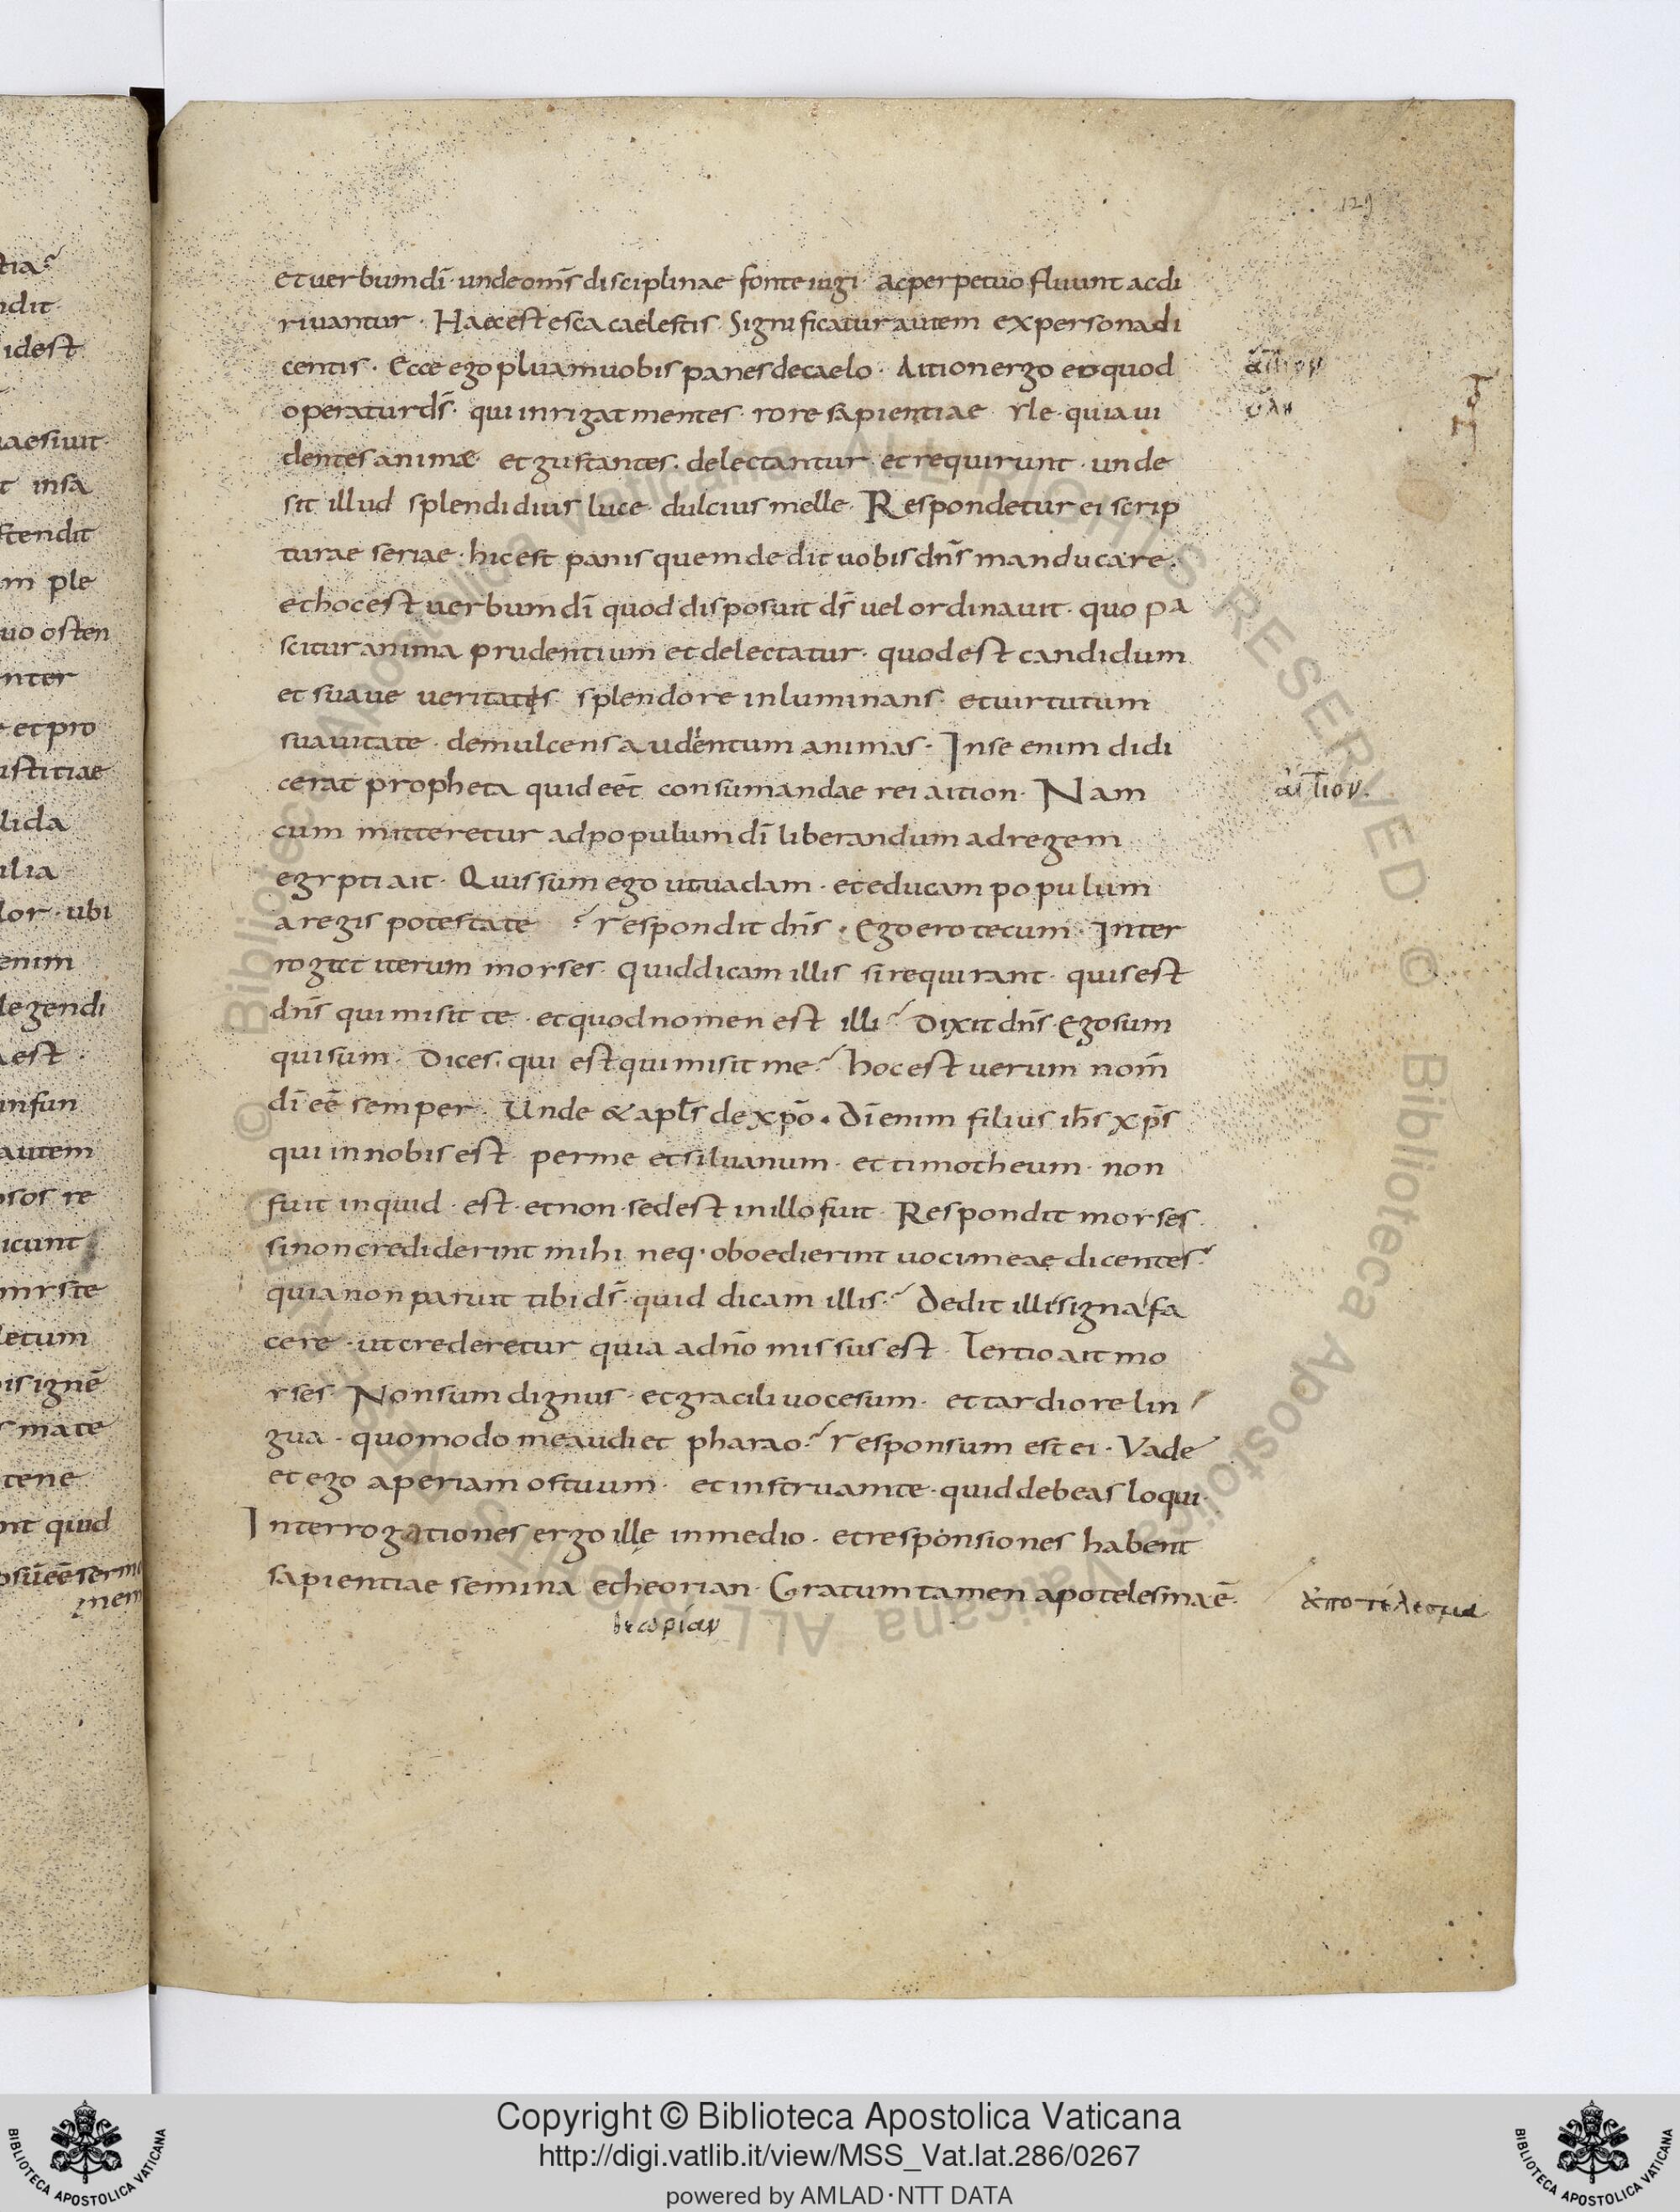 tia?
ndit
idest
aesiuit
t insa
stendit
m ple
uo osten
nter
et pro
ustitiae
lida
ilia
lor · ubi
enim
legendi
a est
infun
autem
sos re
icunt
mrste
letum
is ignē
s mate
tene
nt quid
osūeē sermo
nem
129
et uerbum dī · unde om̄s disciplinae fonte iugi · ac perpetuo fluunt ac di
riuantur · Haec est esca caelestis · Significatur autem ex persona di
centis · Ecce ego pluam uobis panes de caelo · Aition ergo eo quod
operatur ds̄ · qui inrigat mentes · rore sapientiae yle · quia ui
dentes animæ et gustantes · delectantur et requirunt · unde
sit illud splendidius luce · dulcius melle · Respondetur ei scrip
turae seriae · hic est panis quem dedit uobis dn̄s manducare ·
et hoc est uerbum dī quod disposuit ds̄ uel ordinauit · quo pa
scitur anima prudentium et delectatur · quod est candidum
et suaue ueritatis splendore inluminans · et uirtutum
suauitate · demulcens audentum animas · Inse enim didi
cerat propheta quid eēt consumandae rei aition · Nam
cum mitteretur ad populum dī liberandum ad regem
egypti ait · Quis sum ego ut uadam · et educam populum
a regis potestate ? respondit dn̄s · Ego ero tecum · Inter
rogat iterum moyses · quid dicam illis si requirant · quis est
dn̄s qui misit te · et quod nomen est illi? Dixit dn̄s · Ego sum
qui sum · Dices · qui est qui misit me? hoc est uerum nom̄
dī eē semper · Unde & apl̄s de xp̄o · Dī enim filius ih̄s xp̄s
qui in nobis est · per me et siluanum · et timotheum · non
fuit inquid · est · et non · sed est in illo fuit · Respondit moyses ·
si non crediderint mihi neq · oboedierint uoci meae dicentes?
quia non paruit tibi ds̄ · quid dicam illis? Dedit illi signa fa
cere · ut crederetur quia a dn̄o missus est · Tertio ait mo
yses · Non sum dignus · et gracili uoce sum · et tardiore lin
gua · quomodo me audiet pharao? responsum est ei · Vade
et ego aperiam os tuum · et instruam te · quid debeas loqui ·
Interrogationes ergo ille in medio · et responsiones habent
sapientiae semina et heorian · Gratum tamen apotelesma ē ·
θεωρίαν
ἄιτιον
ὕλη
αἴτιον
ἀποτέλεσμα
© Biblioteca Apostolica Vaticana ALL RIGHTS RESERVED © Biblioteca Apostolica Vaticana ALL RIGHTS RESERVED
Copyright © Biblioteca Apostolica Vaticana
http://digi.vatlib.it/view/MSS_Vat.lat.286/0267
powered by AMLAD·NTT DATA
BIBLIOTECA APOSTOLICA VATICANA
BIBLIOTECA APOSTOLICA VATICANA